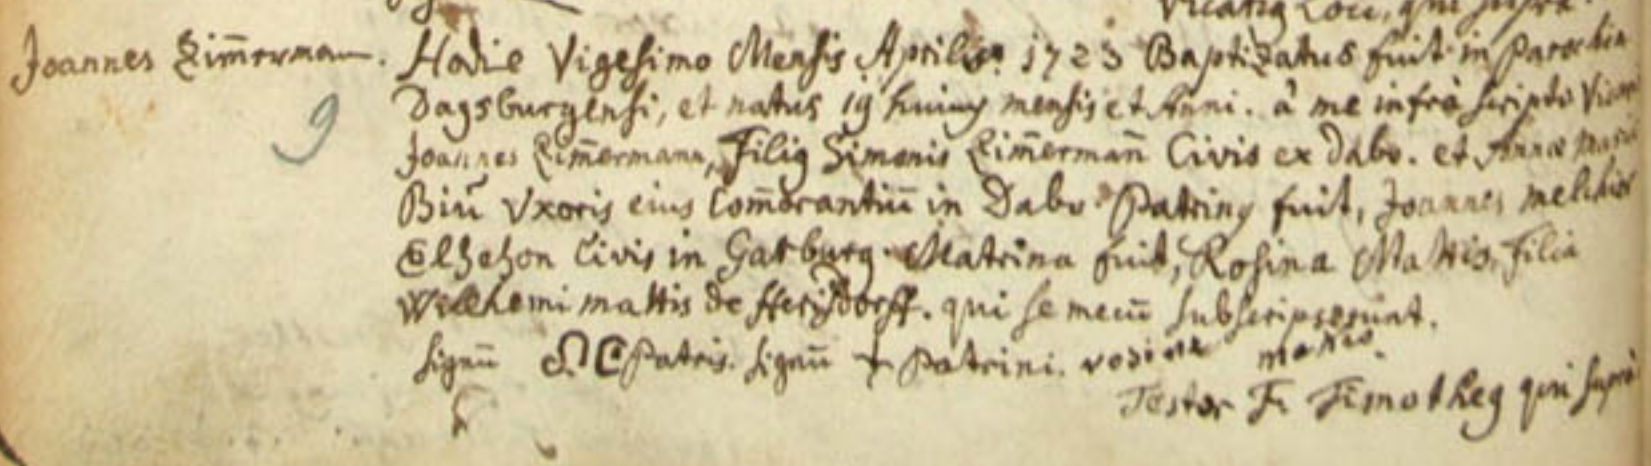 Vicarius Loci, qui supra.
Joannes Zim̅erman.
Hodie Vigesimo Mensis Aprilis 1723 Baptizatus fuit in Parochia
9
Dagsburgensi, et natus 19 huius mensis et Anni. à me infrà scripto Vicar
Joannes Zim̅ermann, Filius Simonis Zim̅erman̅ Civis ex Dabo. et Annæ Mariæ
Vxoris eius Com̅orantiu̅ in Dabo Patrinus fuit, Joannes melchior
Civis in Garburg. Matrina fuit, Rosina Mattis, Filia
Willhemi mattis de qui se mecu̅ subscripserunt.
signu̅ Patris. signu̅ + Patrini. rosina matis.
Testor F. Timotheus qui suprà